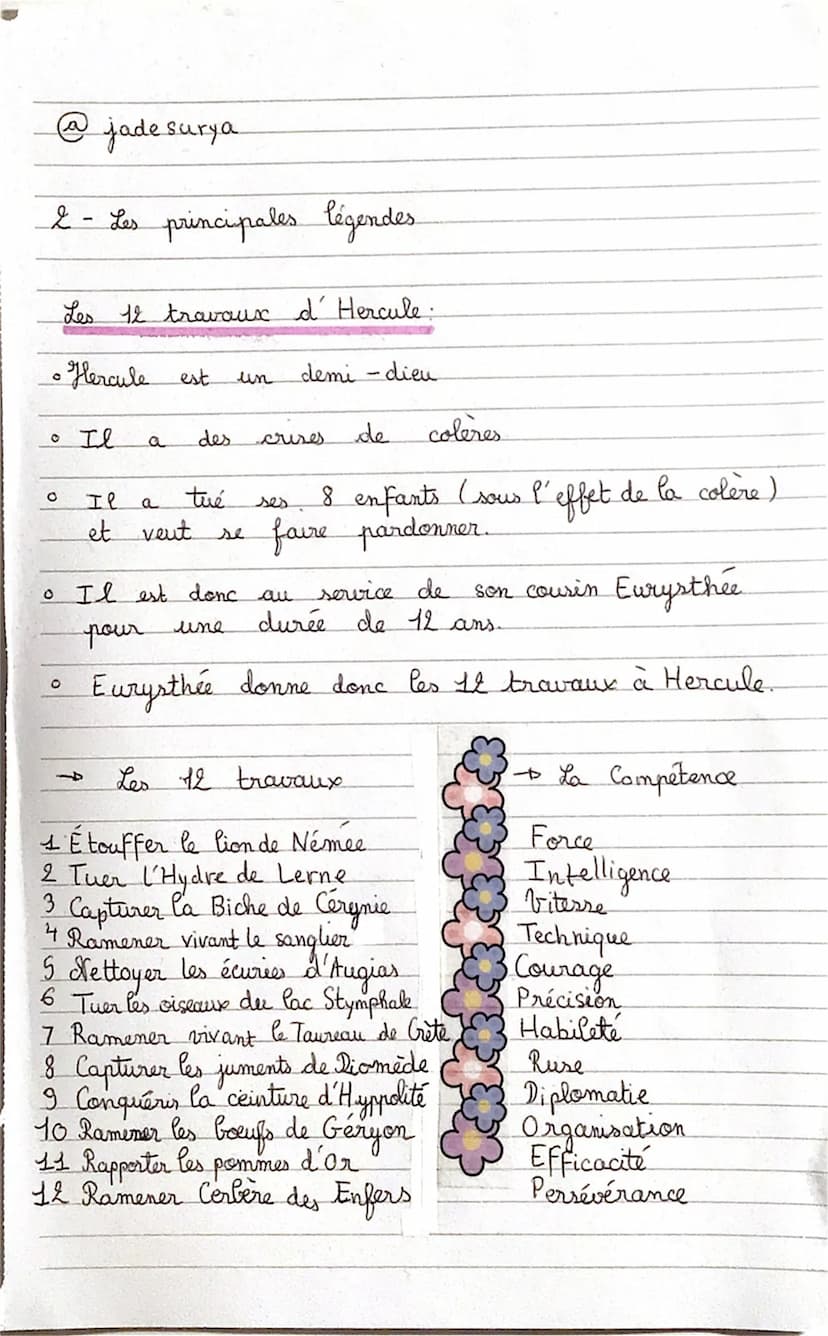 @ jadesurya
2 - Les principales légendes
Les 12 travaux d'Hercule :
Hercule est un demi-dieu
Il a des crises de colères
Il a tué ses 8 enfants (sous l'effet de la colère)
et veut se faire pardonner.
Il est donc au service de son cousin Eurysthée
pour une durée de 12 ans.
Eurysthée donne donc les 12 travaux à Hercule.
→ Les 12 travaux
1 Étouffer le lion de Némée
2 Tuer l'Hydre de Lerne
3 Capturer la Biche de Cérynie
4 Ramener vivant le sanglier
5 Nettoyer les écuries d'Augias
6 Tuer les oiseaux du lac Stymphale
7 Ramener vivant le Taureau de Crète
8 Capturer les juments de Diomède
9 Conquéris la ceinture d'Hyppolité
10 Ramener les boeufs de Géryon
11 Rapporter les pommes d'Or
12 Ramener Cerbère des Enfers
→ La Compétence
Force
Intelligence
Vitesse
Technique
Courage
Précision
Habileté
Ruse
Diplomatie
Organisation
Efficacité
Persévérance